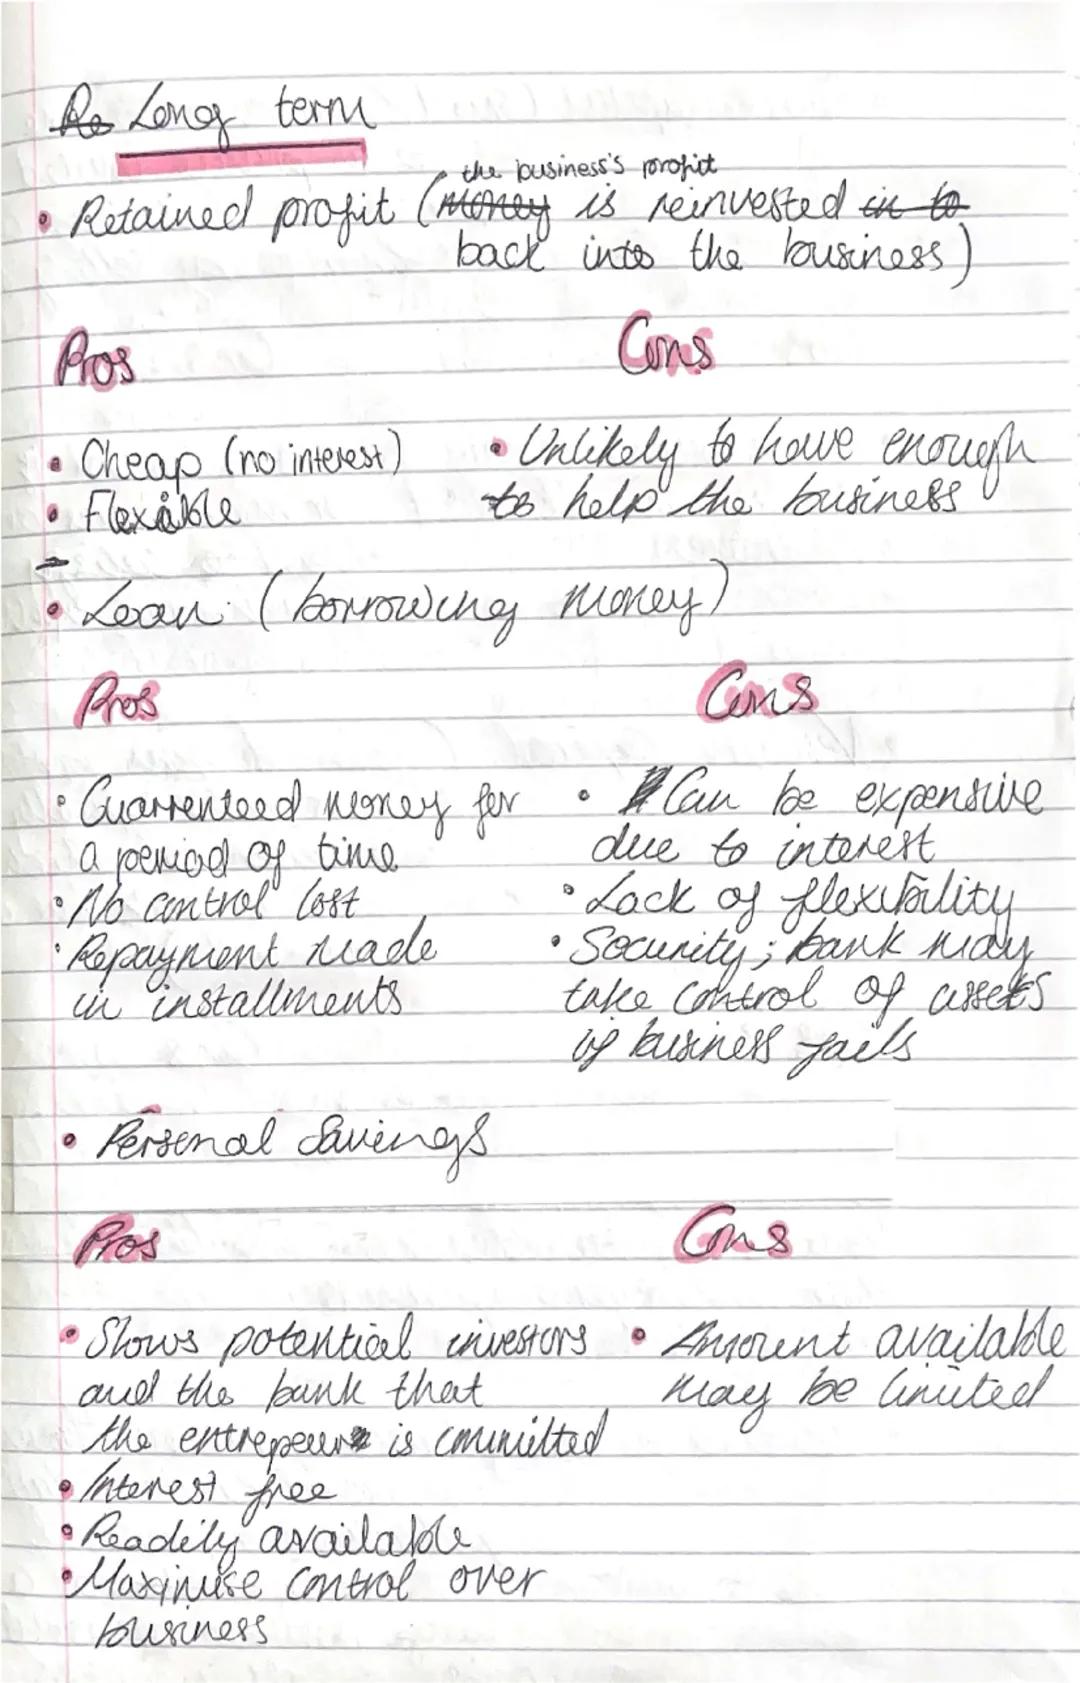 Re Long term
the business's profit
• Retained profit (money is reinvested in to
back into the business)
Pros
Cons
• Cheap (no interest)
• Flexible
• Unlikely to have enough
to help the business
• Loan (borrowing money)
Pros
Cons
• Guarrenteed money for
a period of time
• No control lost
• Repayment made
in installments
• Can be expensive
due to interest
• Lack of flexibility
• Security; bank may
take control of assets
if business fails
• Personal Savings
Pros
Cons
• Shows potential investors
and the bank that
the entrepeur is committed
• Interest free
• Readily available
• Maximise control over
business
• Amount available
may be limited